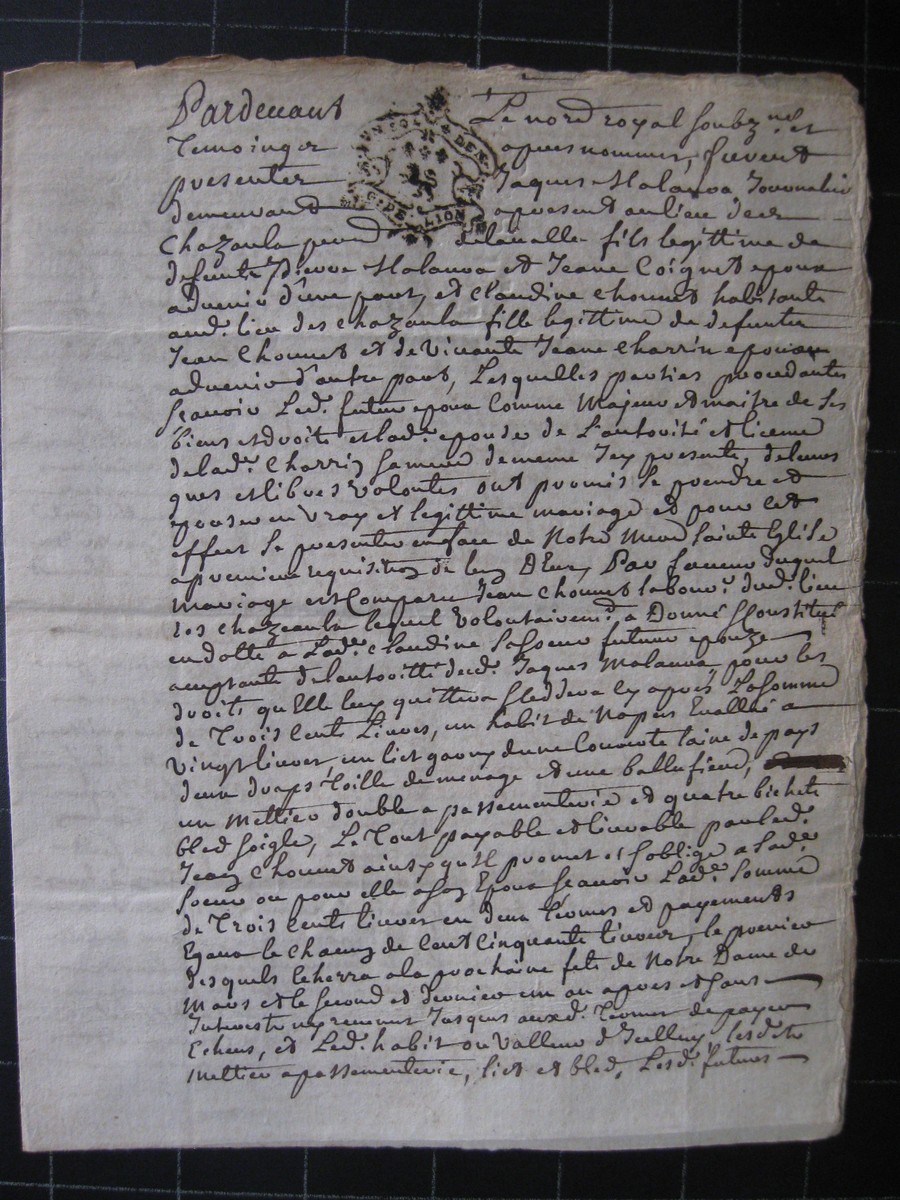 Pardevant Le nord royal soubz.né et
Temoinger apres nommer, furent
presenter Jaques Malanva Journalier
demeurant apresent au lieu des
Chazaula pend delavalle fils legittime de
defunte Pierre Malanva et Jeane Coignet epoux
advenir d'une part, et Claudine Chonnet habitante
aud. lieu des Chazaula fille legittime de defunter
Jean Chonnet et de Vivante Jeane Charrin epouze
advenir d'autre part, Lesquelles parties procedantes
scavoir Led. futur epoux Comme Majeur et maitre de ses
biens et droits et lad.e epouse de L'autorité et licence
de lad.e Charrin sa mere demême Icy presente, de leurs
grés et libres volontés ont promis se prendre et
epouser en vray et legittime mariage et pour cet
effect se presenter en face de Notre Mere Sainte Eglise
a premiere requisition de l'un D'Eux, Par faveur duquel
mariage est Comparu Jean Chonnet labour.r dud. lieu
des Chazeaula lequel volontairem.t a Donné & Constitué
en dotte a Lad.e Claudine sa soeur future epouze
acceptante de l'autoritté dud. Jaques Malanva, pour les
droits qu'Elle luy quittera & cedera cy apres La somme
de Trois Cents Livres, un habit de Nopces Evallué a
Vingt livres un lict garny d'une Couverte laine de pays
deux draps toille de menage et une ballufiere,
un Mettier double a passementerie et quatre bichets
bled seigle, Le Tout payable et livrable par led.
Jean Chonnet ainsy qu'il promet et s'oblige a Lad.e
soeur ou pour elle a son Epoux scavoir Lad.e somme
de Trois Cents livres en deux termes et payements
Egaux le chacun de Cent Cinquante livres, le premier
desquels Echerra a la prochaine fete de Notre Dame de
Mars et le second et dernier un an apres et sans
Interest n'y remuant Jusques auxd. Termes de payer
Echeus, et Led. habit ou valleur d'Icelluy, lesdits
mettier a passementerie, lict et bled, Lesd. futurs